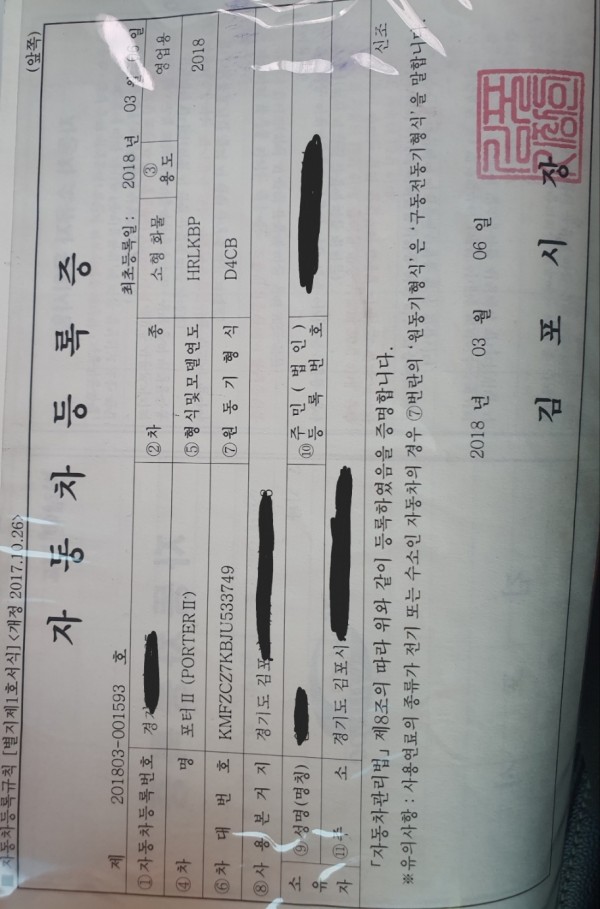 자동차등록규칙 [별지제1호서식] <개정 2017.10.26> (앞쪽)
자 동 차 등 록 증
제 201803-001593 호 최초등록일 : 2018 년 03 월 06 일
①자동차등록번호 ②차 종 소형 화물 ③용도 영업용
④차 명 포터Ⅱ (PORTERⅡ) ⑤형식및모델연도 HRLKBP 2018
⑥차 대 번 호 KMFZCZ7KBJU533749 ⑦원 동 기 형 식 D4CB
⑧사 용 본 거 지 경기도 김포
소유자 ⑨성명(명칭) ⑩주민(법인)등록번호
⑪주 소 경기도 김포시
「자동차관리법」 제8조의 따라 위와 같이 등록하였음을 증명합니다. 신조
※유의사항 : 사용연료의 종류가 전기 또는 수소인 자동차의 경우 ⑦번란의 '원동기형식'은 '구동전동기형식'을 말합니다.
2018 년 03 월 06 일
김 포 시 장